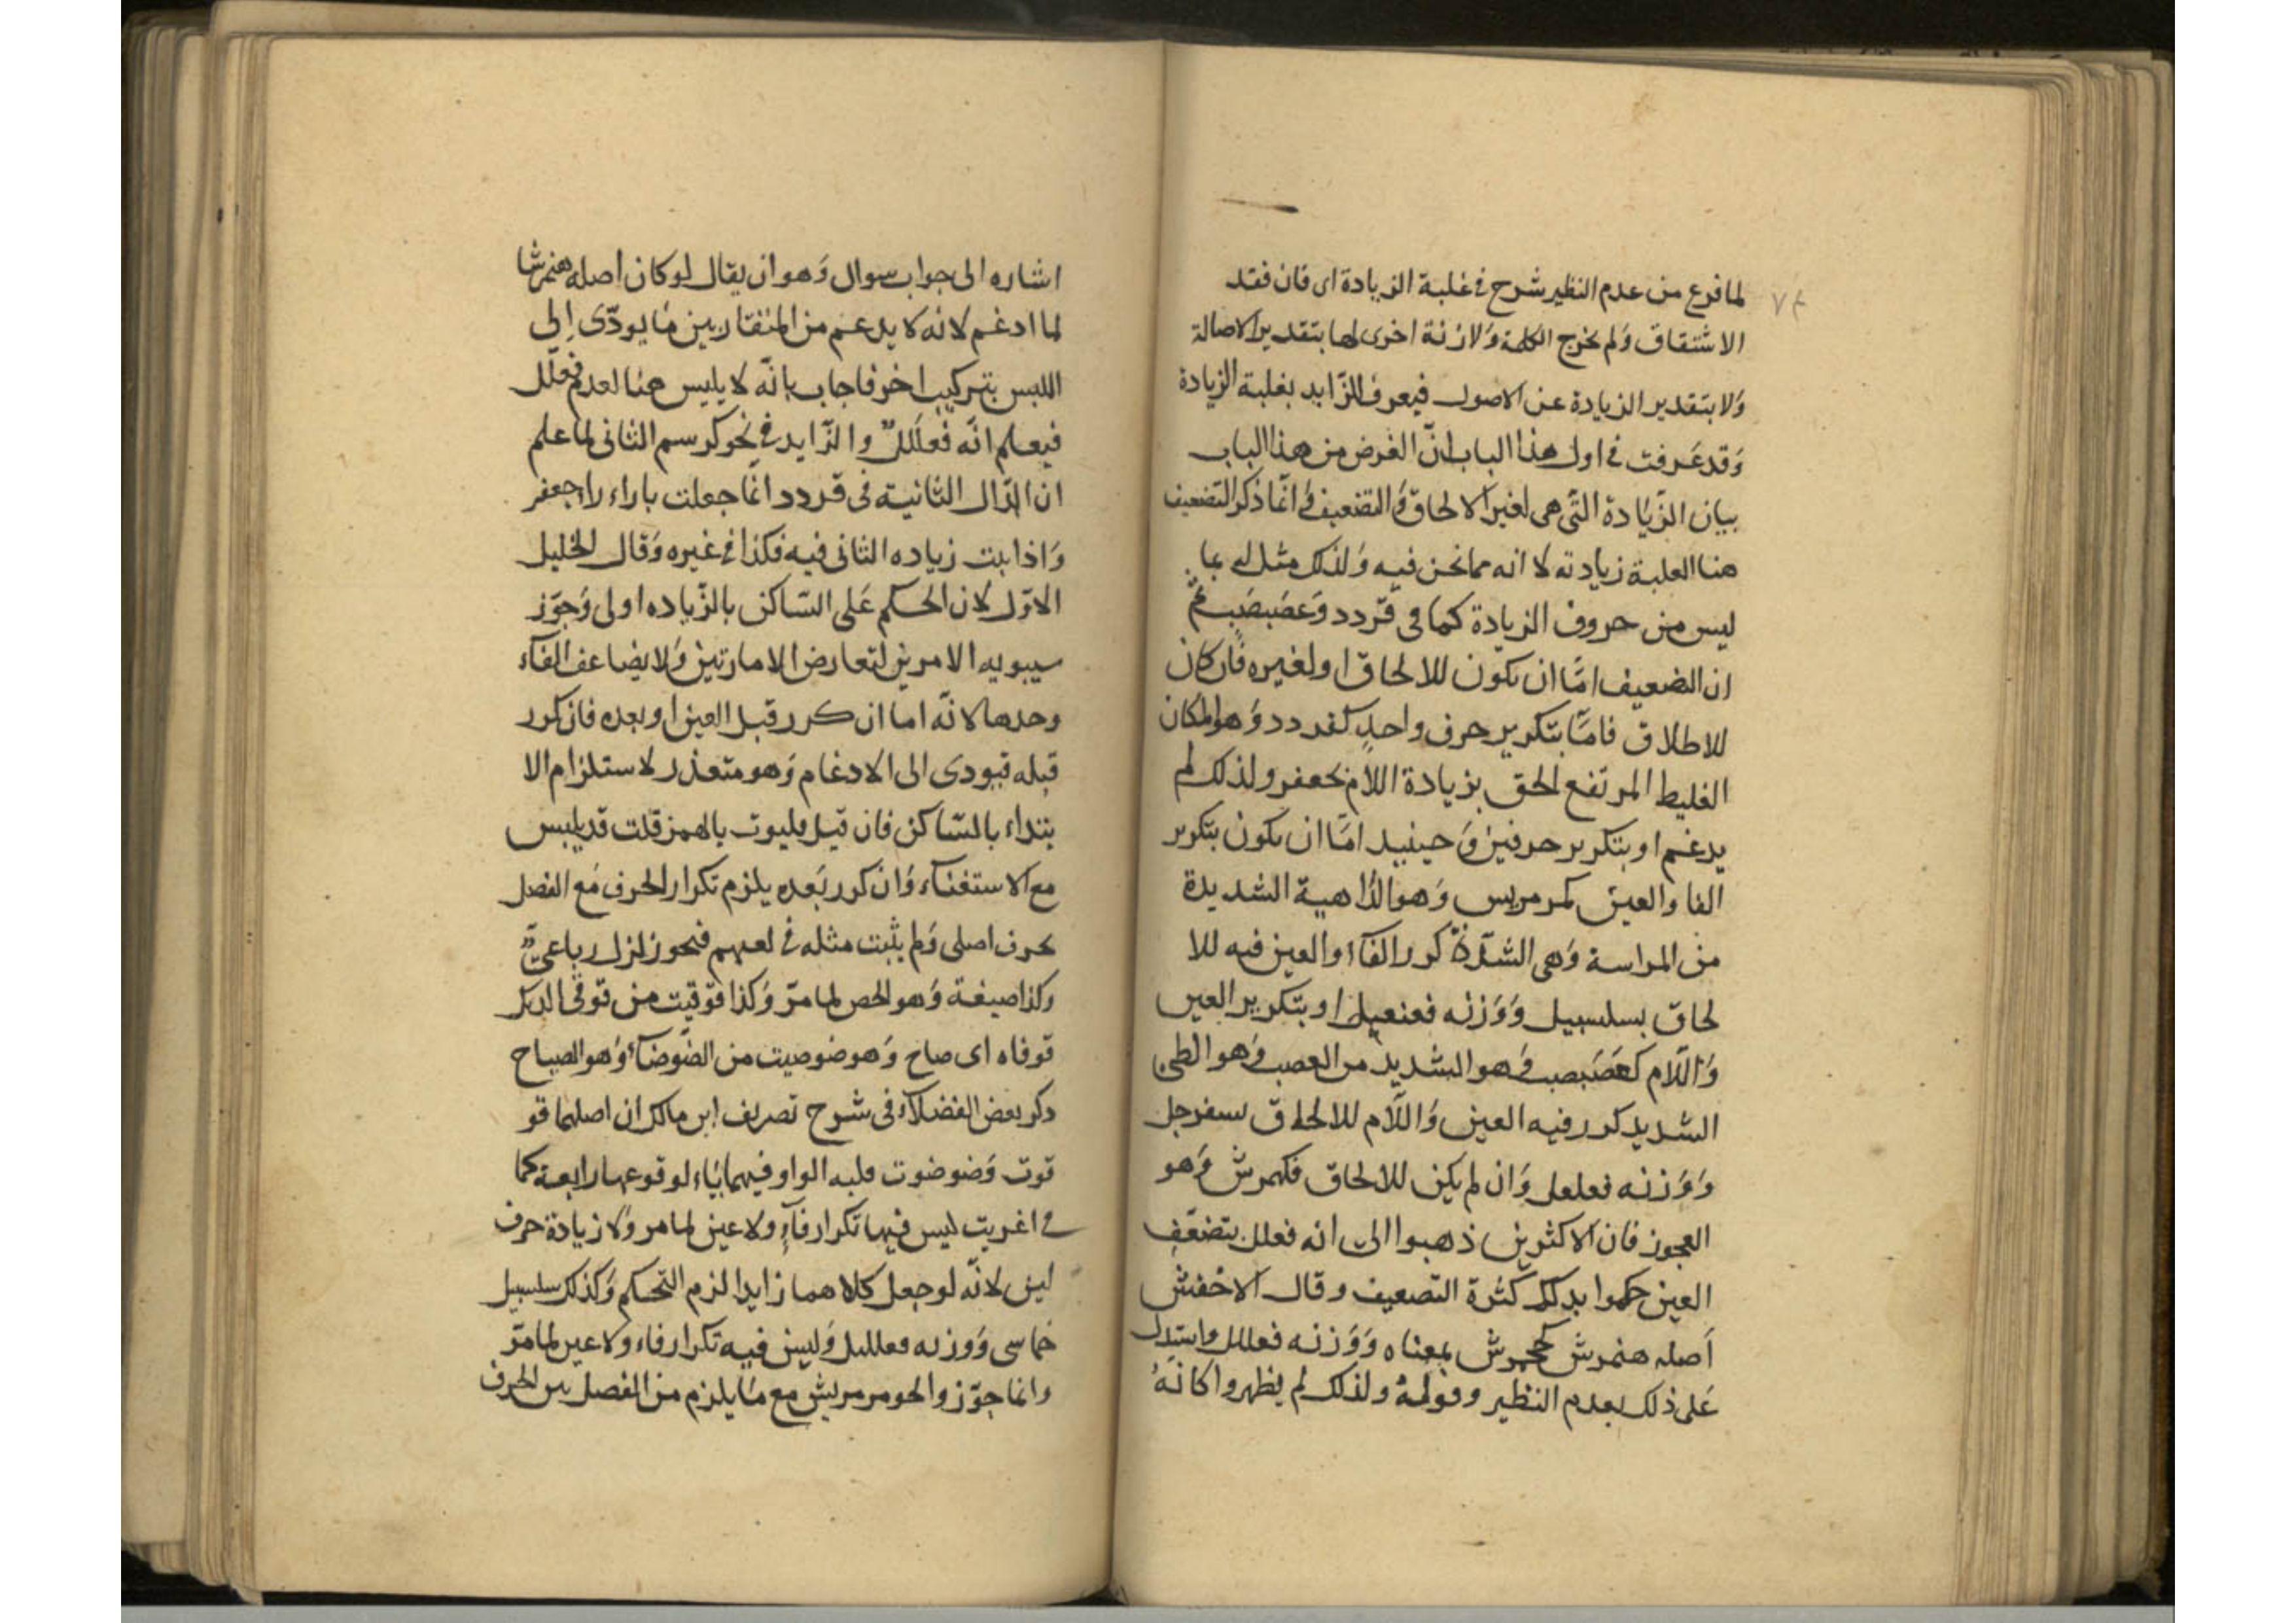 ٧٤
لما فرع من عدم النظير شرح في غلبة الزيادة اى فان فقد
الاشتقاق وَلم يخرج الكلمة وَلا زنة اخرى لها بتقدير الاصالة
وَلا بتقدير الزيادة عن الاصول فيعرف الزّايد بغلبة الزيادة
وَقد عَرفت في اول هذا الباب انّ الغرض من هذا الباب
بيان الزّيَادة التّى هى لغير الالحاق وَالتضعيف وَانّما ذكر التّضعيف
هنا العلبة زيادته لا انه مما نحن فيه وَلذلك مثل له بما
ليس من حروف الزيادة كما فى قردد وَعصَبصَب ثمّ
ان التضعيف امّا ان يكون للالحاق او لغيره فان كان
للاطلاق فامّا بتكرير حرف واحدٍ كقردد وَهو المكان
الغليظ المرتفع الحق بزيادة اللام بجعفر ولذلك لم
يدغم او بتكرير حرفين وَحينيد امّا ان يكون بتكرير
الفا والعين كمرمريس وَهو الدّاهية الشديدة
من المراسة وَهى الشدّة كرر الفآء والعين فيه للا
لحاق بسلسبيل وَوَزنه فعفعيل او بتكرير العين
وَاللّام كعَصَبصب وَهو الشديد من العصب وَهو الطى
الشديد كرر فيه العين وَاللّام للالحاق بسفرجل
وَوَزنه فعلعل وَان لم يكن للالحاق فكهمرش وَهو
العجوز فان الاكثرين ذهبوا الى انه فعلل بتضعّف
العين حكموا بدلك لكثرة التضعيف وقال الاخفش
اَصله هنمرش كجحمرش بمعناه وَوَزنه فعللل واستدل
عَلى ذلك بعدم النظير وقولهُ ولذلك لم يظهروا كانّهُ
اشاره الى جواب سوال وَهو ان يقال لو كان اصله هنمرشا
لما ادغم لانه لا يدغم من المتقاربين مَا يودّى اِلى
اللبس بتركيب اخر فاجاب بانّه لا يلبس هنا لعدم فعلّل
فيعلم انّه فَعلَللٌ والزّايد في نحو كرسم الثانى لما علم
ان الدّال الثانية فى قردد انّما جعلت باراء راء جعفر
وَاذا ثبت زياده الثانى فيه فكذا في غيره وَقال الخليل
الاوّل لان الحكم عَلى السّاكن بالزّياده اولى وَجوّز
سيبويه الامرين لتعارض الامارتين وَلا يضاعف الفآء
وحدها لانّه اما ان كرر قبل العين او بعده فان كرر
قبله فيودى الى الادغام وَهو متعذر لاستلزام الا
بتداء بالسّاكن فان قيل فليوت بالهمز قلت قد يلبس
مع الاستغنآء وَان كرر بَعده يلزم تكرار الحرف مَع الفصل
بحرف اصلى وَلم يثبت مثله في لغتهم فنحو زلزل رباعىّ
وكذا صيغة وَهو الحص لما مرّ وَكذا قوقيت من قوقى الديك
قوقاه اى صاح وَهو ضوضيت من الضّوضآء وَهو الصياح
دكر بعض الفضلآء فى شرح تصريف ابن مالك ان اصلهما قو
قوت وَضوضوت قلبه الواو فيهما يَاء لوقوعها رابعة كما
في اغريت ليس فيها تكرار فآءٍ ولا عين لما مر وَلا زيادة حرف
لين لانّه لو جعل كلاهما زايدا لزم التّحكم وَكذلك سلسبيل
خماسى وَوزنه فعلليل وَليس فيه تكرار فاء ولا عين لما مرّ
وانما جوّزوا نحو مرمريش مع مَا يلزم من الفصل بين الحرف